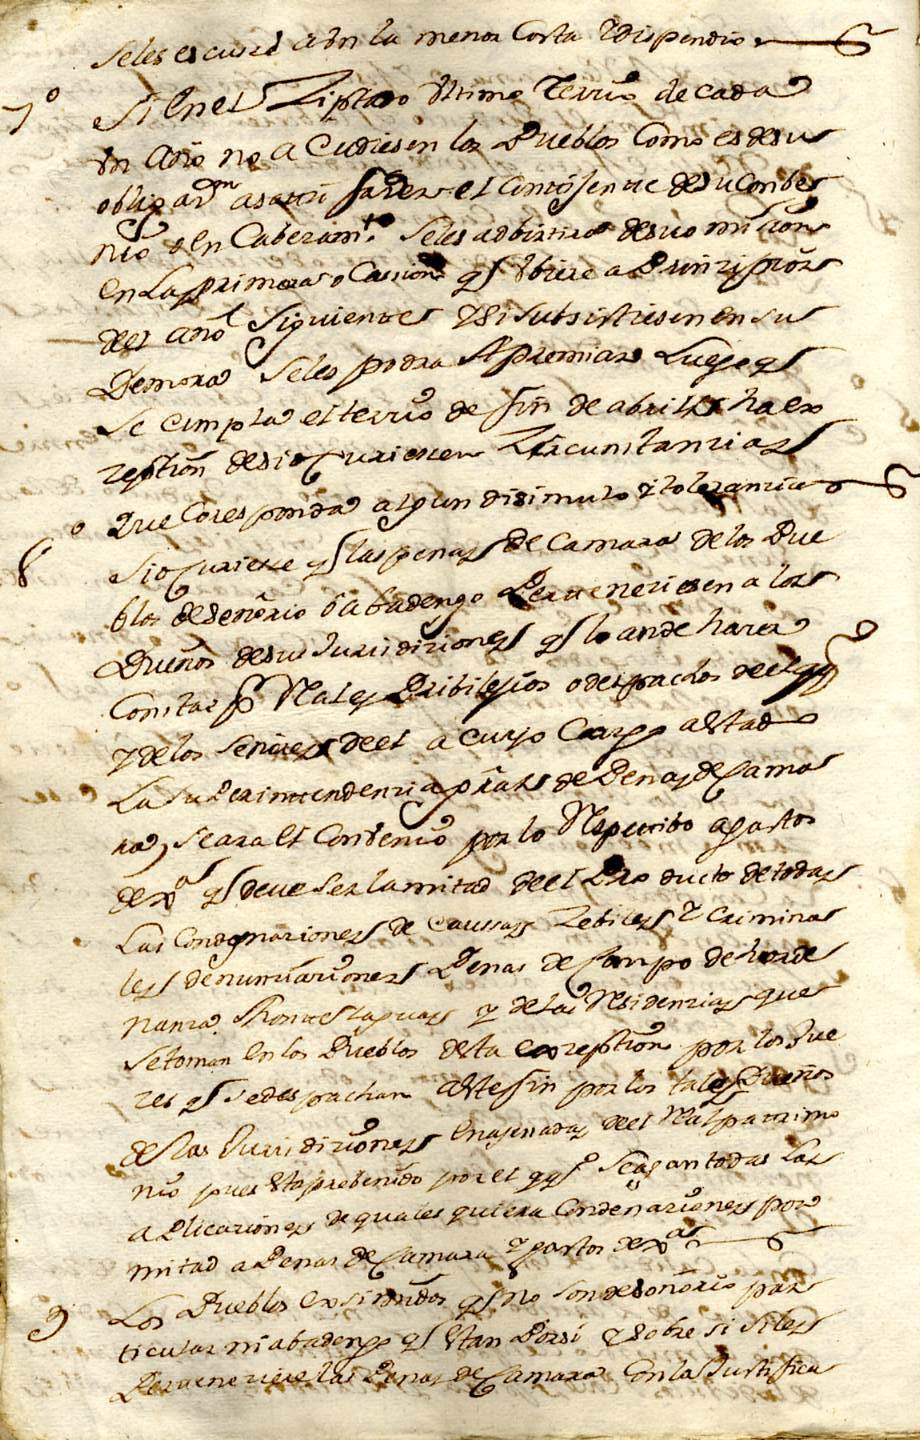 seles escuse aun la menor Costa y dispendio
7º Si en el Ziptado Ultimo Terrno de cada
Un Año no a Cudiesen los Pueblos Como es de su
obligazn a satisfazer el Contijente de su Conbe
nio o en Cabezamto Seles adbirtira de su omision
en La primera oCassion qe Ubiere a Prinzipios
del Año Siguiente y si subsistiesen en su
Demora Seles podra Apremiar Luego qe
Se Cumpla el terrno de fin de abril ha ex
zeption de si oCurieren Zircunstanzias
Que Corresponda algun disimulo y toleranzia
8º Si oCuriere qe las penas de Camara de los Pue
blos de señorio o abadengo Perteneziesen a los
Dueños de su Jurisdiziones qe lo an de hazer
Constar pr Rales Pribilejios o despachos del
y de los Señores de el a cuyo Cargo a estado
La Superintendenzia de Penas de Cama
ra, seara el Conbenio por lo Respectibo a gastos
de qe deve ser la mitad de el Producto de todas
Las Condenaziones de Caussas Zebiles y Crimina
les denunziaziones Penas de Campo de horde
nanza y de las Residenzias que
Se toman en los Pueblos de la exzeption por los Jue
zes qe se despachan a este fin por los tales Dueños
de las Jurisdiziones enajenadas de el Real patrimo
nio pues esta prebenido por el Se agan todas Las
aPlicaziones de quales quiera Condenaziones por
mitad a Penas de Camara y gastos de
9 Los Pueblos exsimidos qe no son de señorio par
ticular ni abadengo qe estan Por si y sobre si Siles
Perteneziere las Penas de Camara Con la Justifica